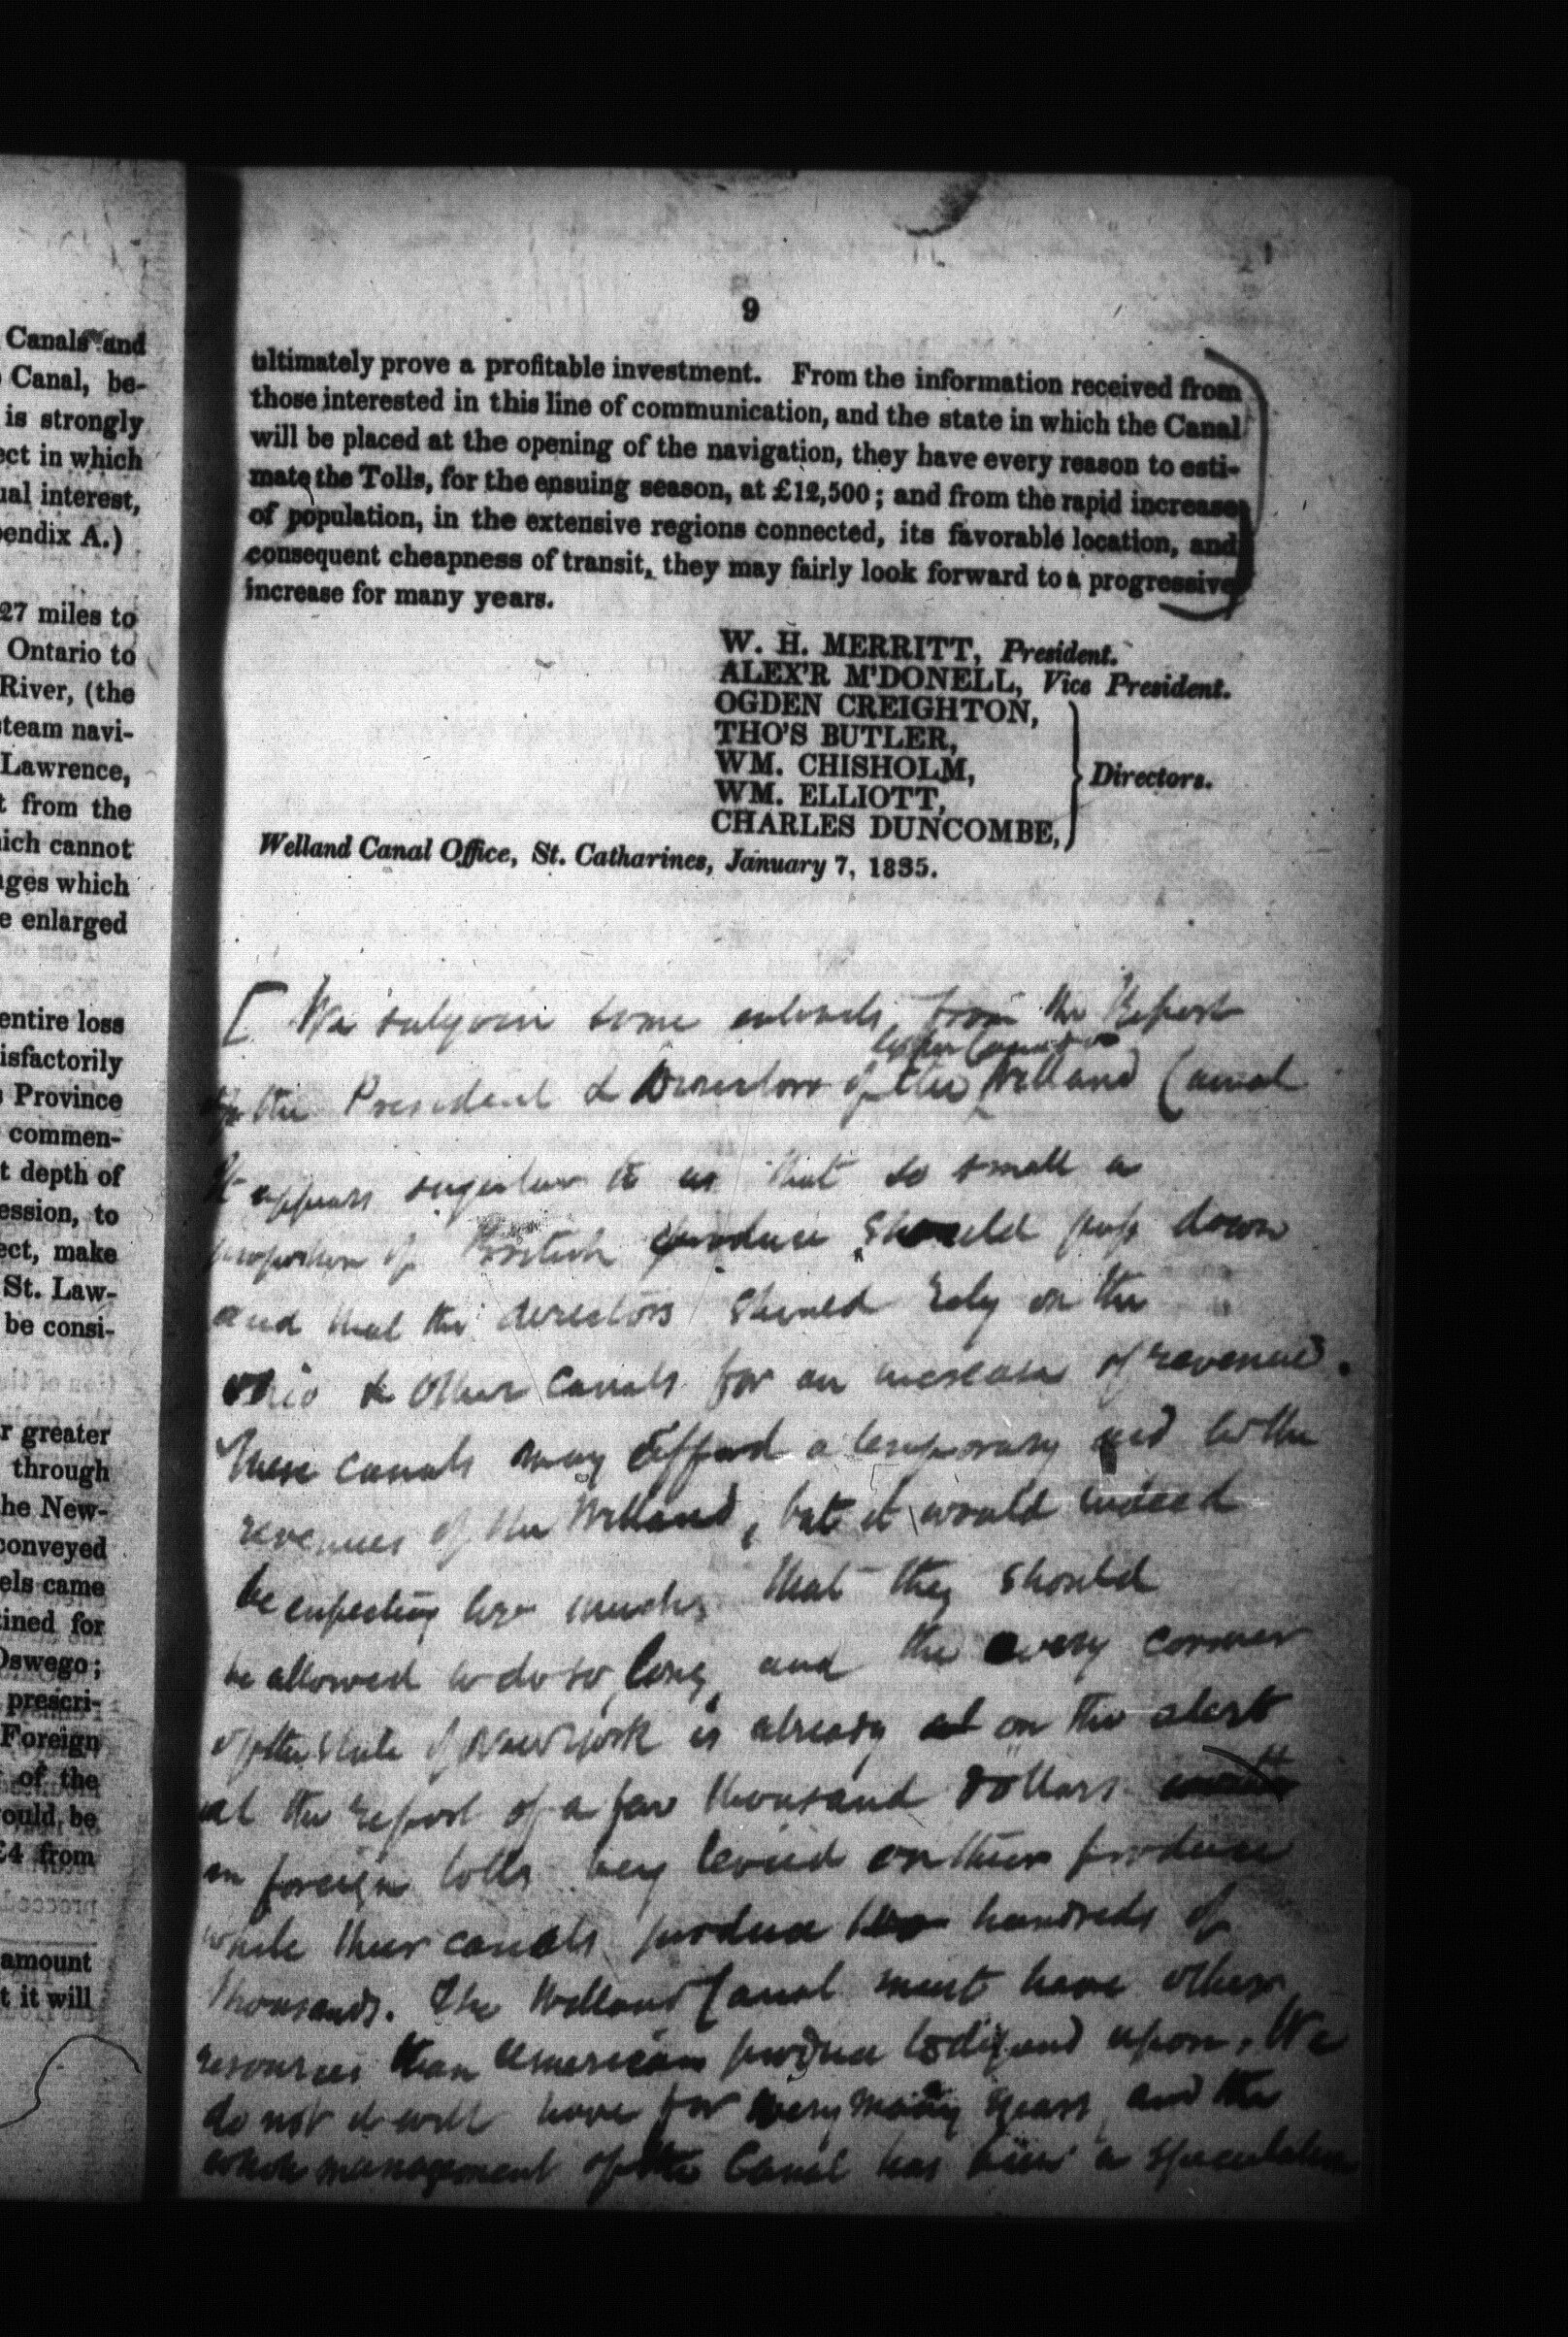 Canals and
Canal, be-
is strongly
ect in which
ual interest,
pendix A.)
27 miles to
Ontario to
River, (the
steam navi-
Lawrence,
t from the
hich cannot
ages which
e enlarged
entire loss
isfactorily
Province
commen-
t depth of
ession, to
ect, make
St. Law-
be consi-
r greater
through
he New-
conveyed
els came
ined for
Oswego;
prescri-
Foreign
of the
ould be
£4 from
amount
t it will
9
ultimately prove a profitable investment. From the information received from
those interested in this line of communication, and the state in which the Canal
will be placed at the opening of the navigation, they have every reason to esti-
mate the Tolls, for the ensuing season, at £12,500; and from the rapid increase
of population, in the extensive regions connected, its favorable location, and
consequent cheapness of transit, they may fairly look forward to a progressive
increase for many years.
W. H. MERRITT, President.
ALEX'R M'DONELL, Vice President.
OGDEN CREIGHTON,
THO'S BUTLER,
WM. CHISHOLM,
WM. ELLIOTT,
CHARLES DUNCOMBE,
Directors.
Welland Canal Office, St. Catharines, January 7, 1835.
[ We subjoin some extracts from the Report
of the President & Directors of the Welland Canal
It appears singular to us that so small a
proportion of British produce should pass down
and that the directors should rely on the
ohio & other canals for an increase of revenue.
These canals may afford a temporary aid to the
revenues of the Welland, but it would indeed
be expecting too much, that they should
be allowed to do so long, and the every corner
of the State of New York is already on the alert
at the report of a few thousand dollars
in foreign tolls being levied on their produce
while their canals produce hundreds of
thousands. The Welland Canal must have other
resources than American produce to depend upon. We
do not it will have for very many years, and the
whole management of the Canal has been a speculation